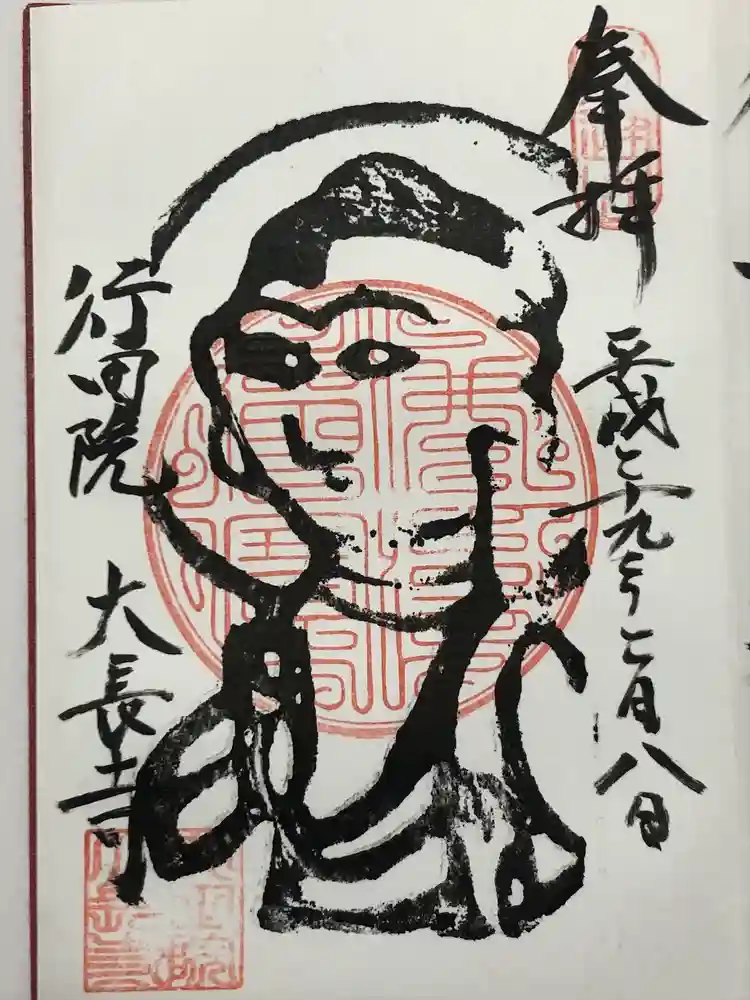 奉拝
平成二十九年二月八日
行田院
大長寺